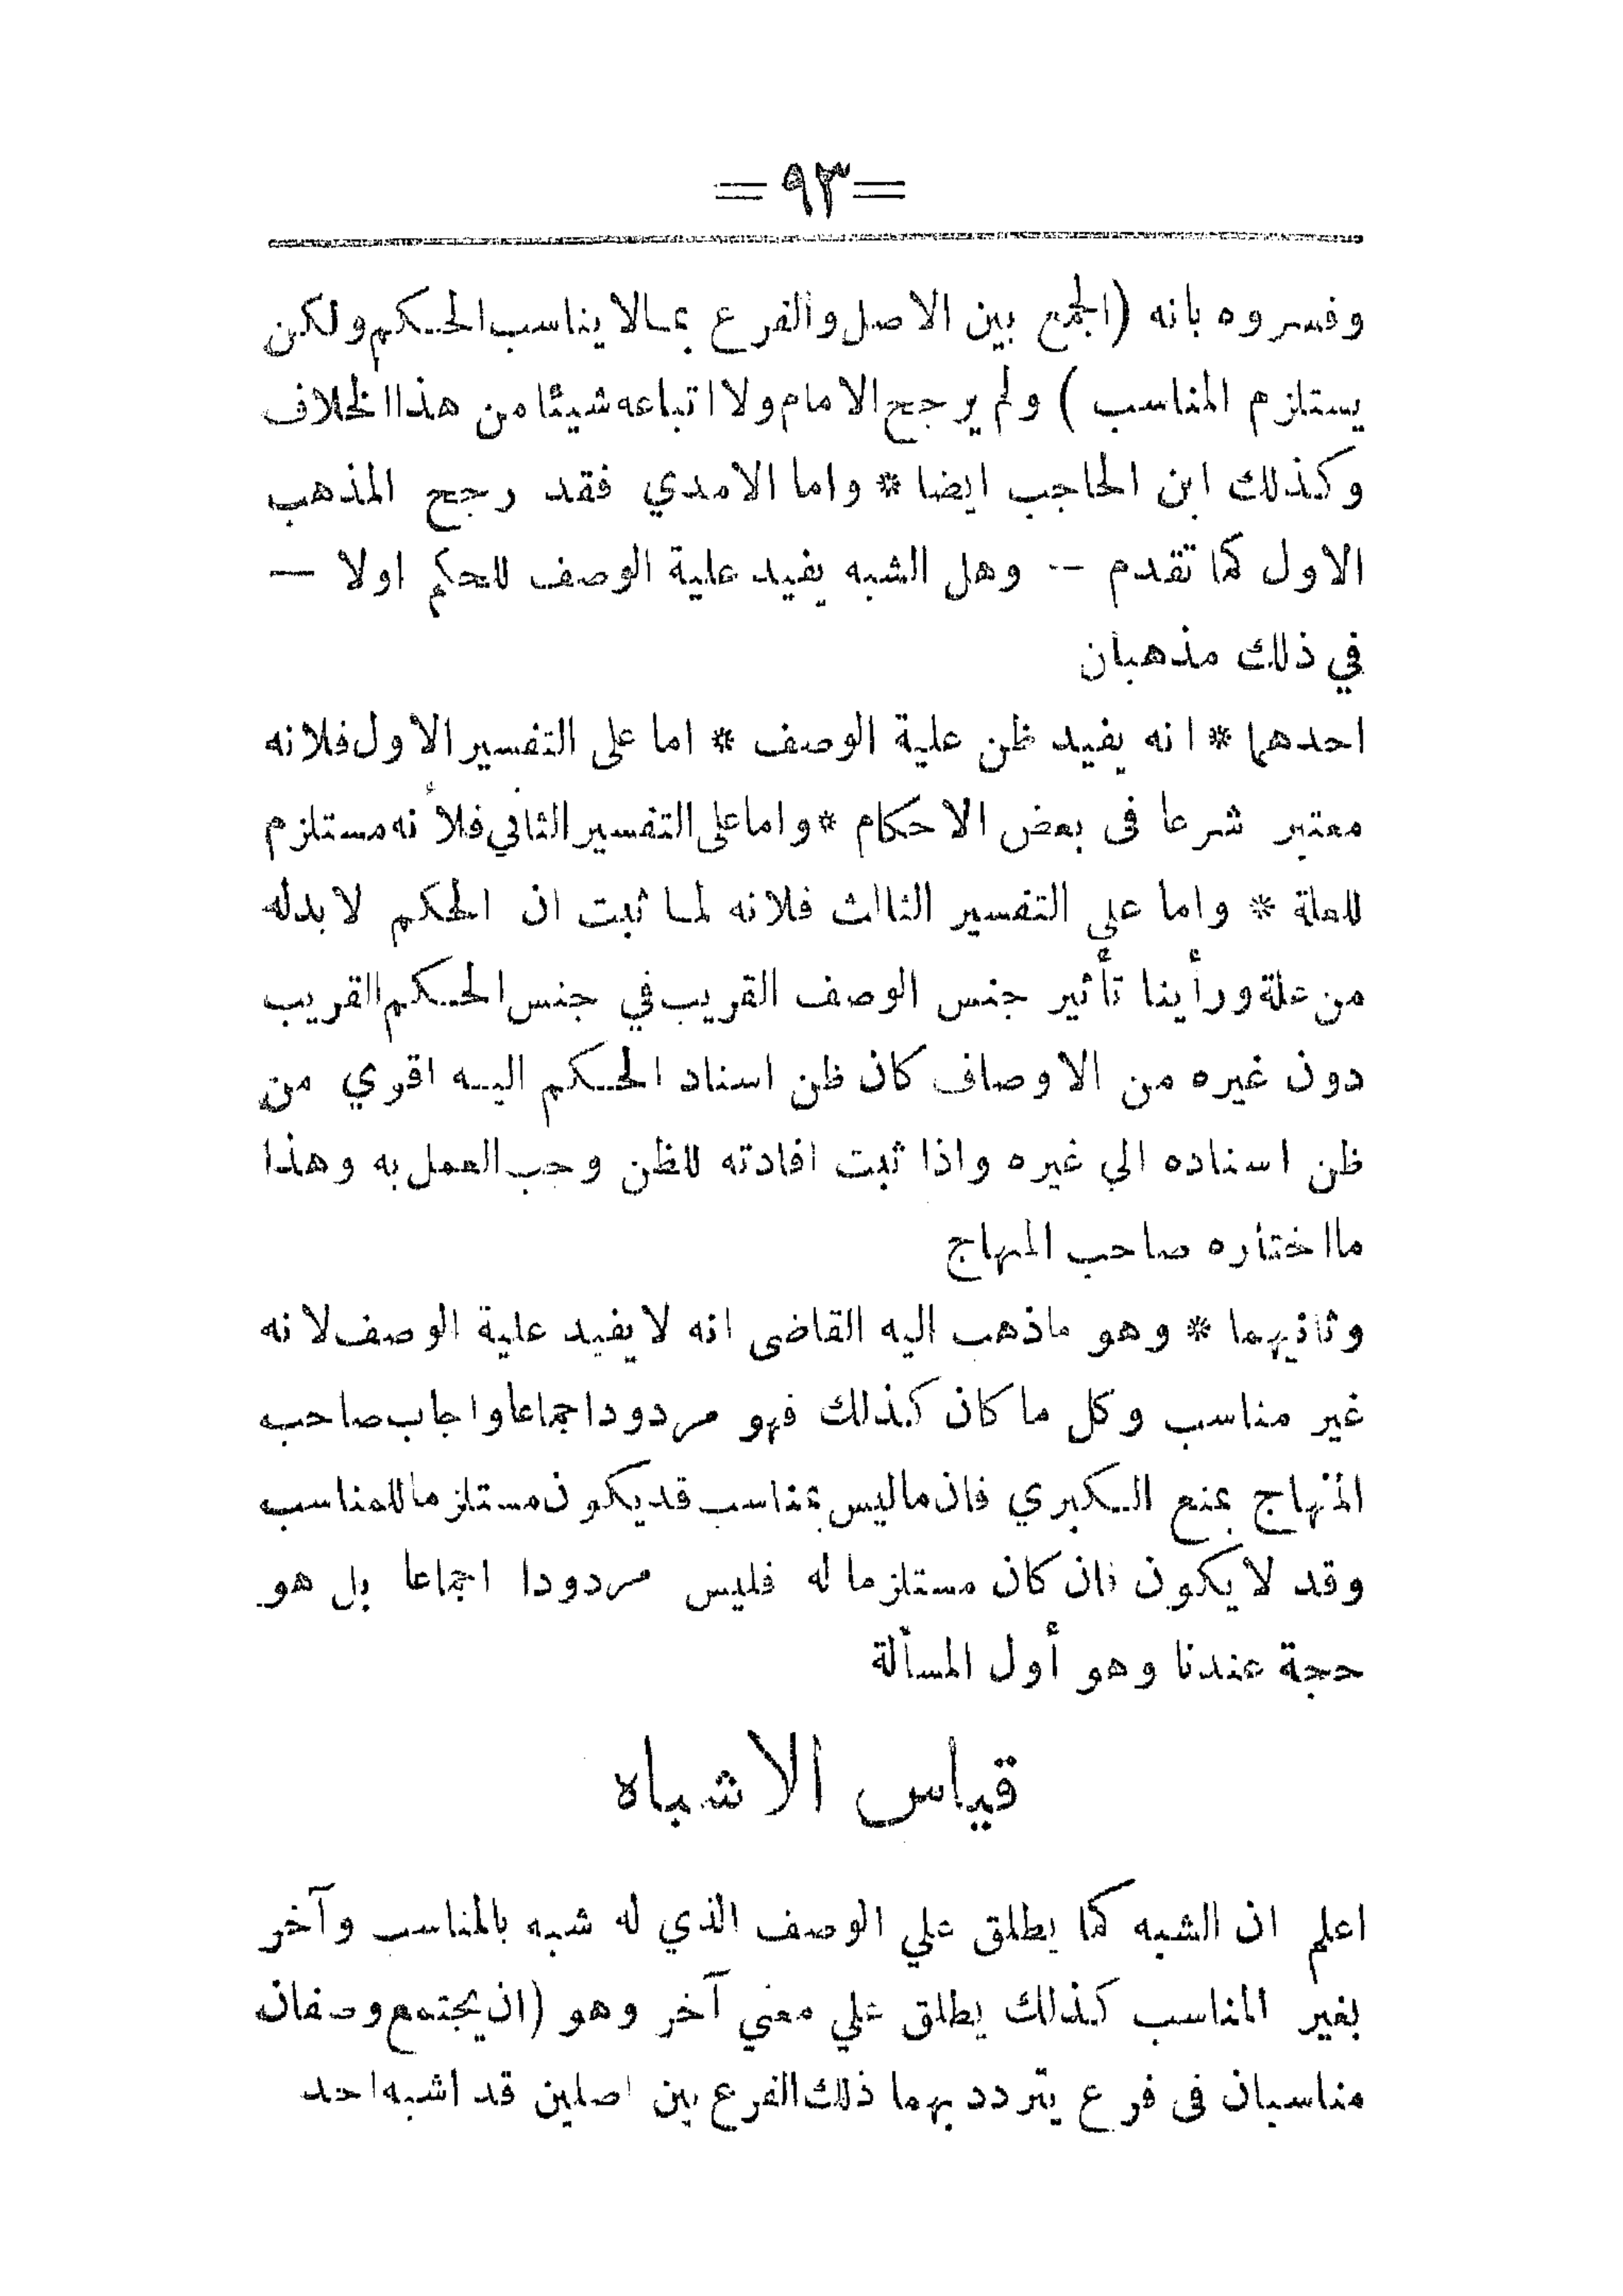 =٩٣=
وفسروه بانه (الجمع بين الاصل والفرع بمالا يناسب الحكم ولكن
يستلزم المناسب) ولم يرجح الامام ولا اتباعه شيئا من هذا الخلاف
وكذلك ابن الحاجب ايضا * واما الامدي فقد رجح المذهب
الاول كما تقدم -- وهل الشبه يفيد علية الوصف للحكم اولا —
في ذلك مذهبان
احدهما * انه يفيد ظن علية الوصف * اما على التفسير الاول فلانه
معتبر شرعا فى بعض الاحكام * واما على التفسير الثاني فلأنه مستلزم
للعلة * واما علي التفسير الثالث فلانه لما ثبت ان الحكم لابدله
من علة ورأينا تأثير جنس الوصف القريب في جنس الحكم القريب
دون غيره من الاوصاف كان ظن اسناد الحكم اليه اقوي من
ظن اسناده الي غيره واذا ثبت افادته للظن وجب العمل به وهذا
مااختاره صاحب المنهاج
وثانيهما * وهو ماذهب اليه القاضى انه لايفيد علية الوصف لانه
غير مناسب وكل ما كان كذلك فهو مردود اجماعا واجاب صاحب
المنهاج بمنع الكبري فان ماليس بمناسب قد يكون مستلزما للمناسب
وقد لايكون فان كان مستلزما له فليس مردودا اجماعا بل هو
حجة عندنا وهو أول المسألة
قياس الاشباه
اعلم ان الشبه كما يطلق علي الوصف الذي له شبه بالمناسب وآخر
بغير المناسب كذلك يطلق علي معني آخر وهو (ان يجتمع وصفان
مناسبان فى فرع يتردد بهما ذلك الفرع بين اصلين قد اشبه احد